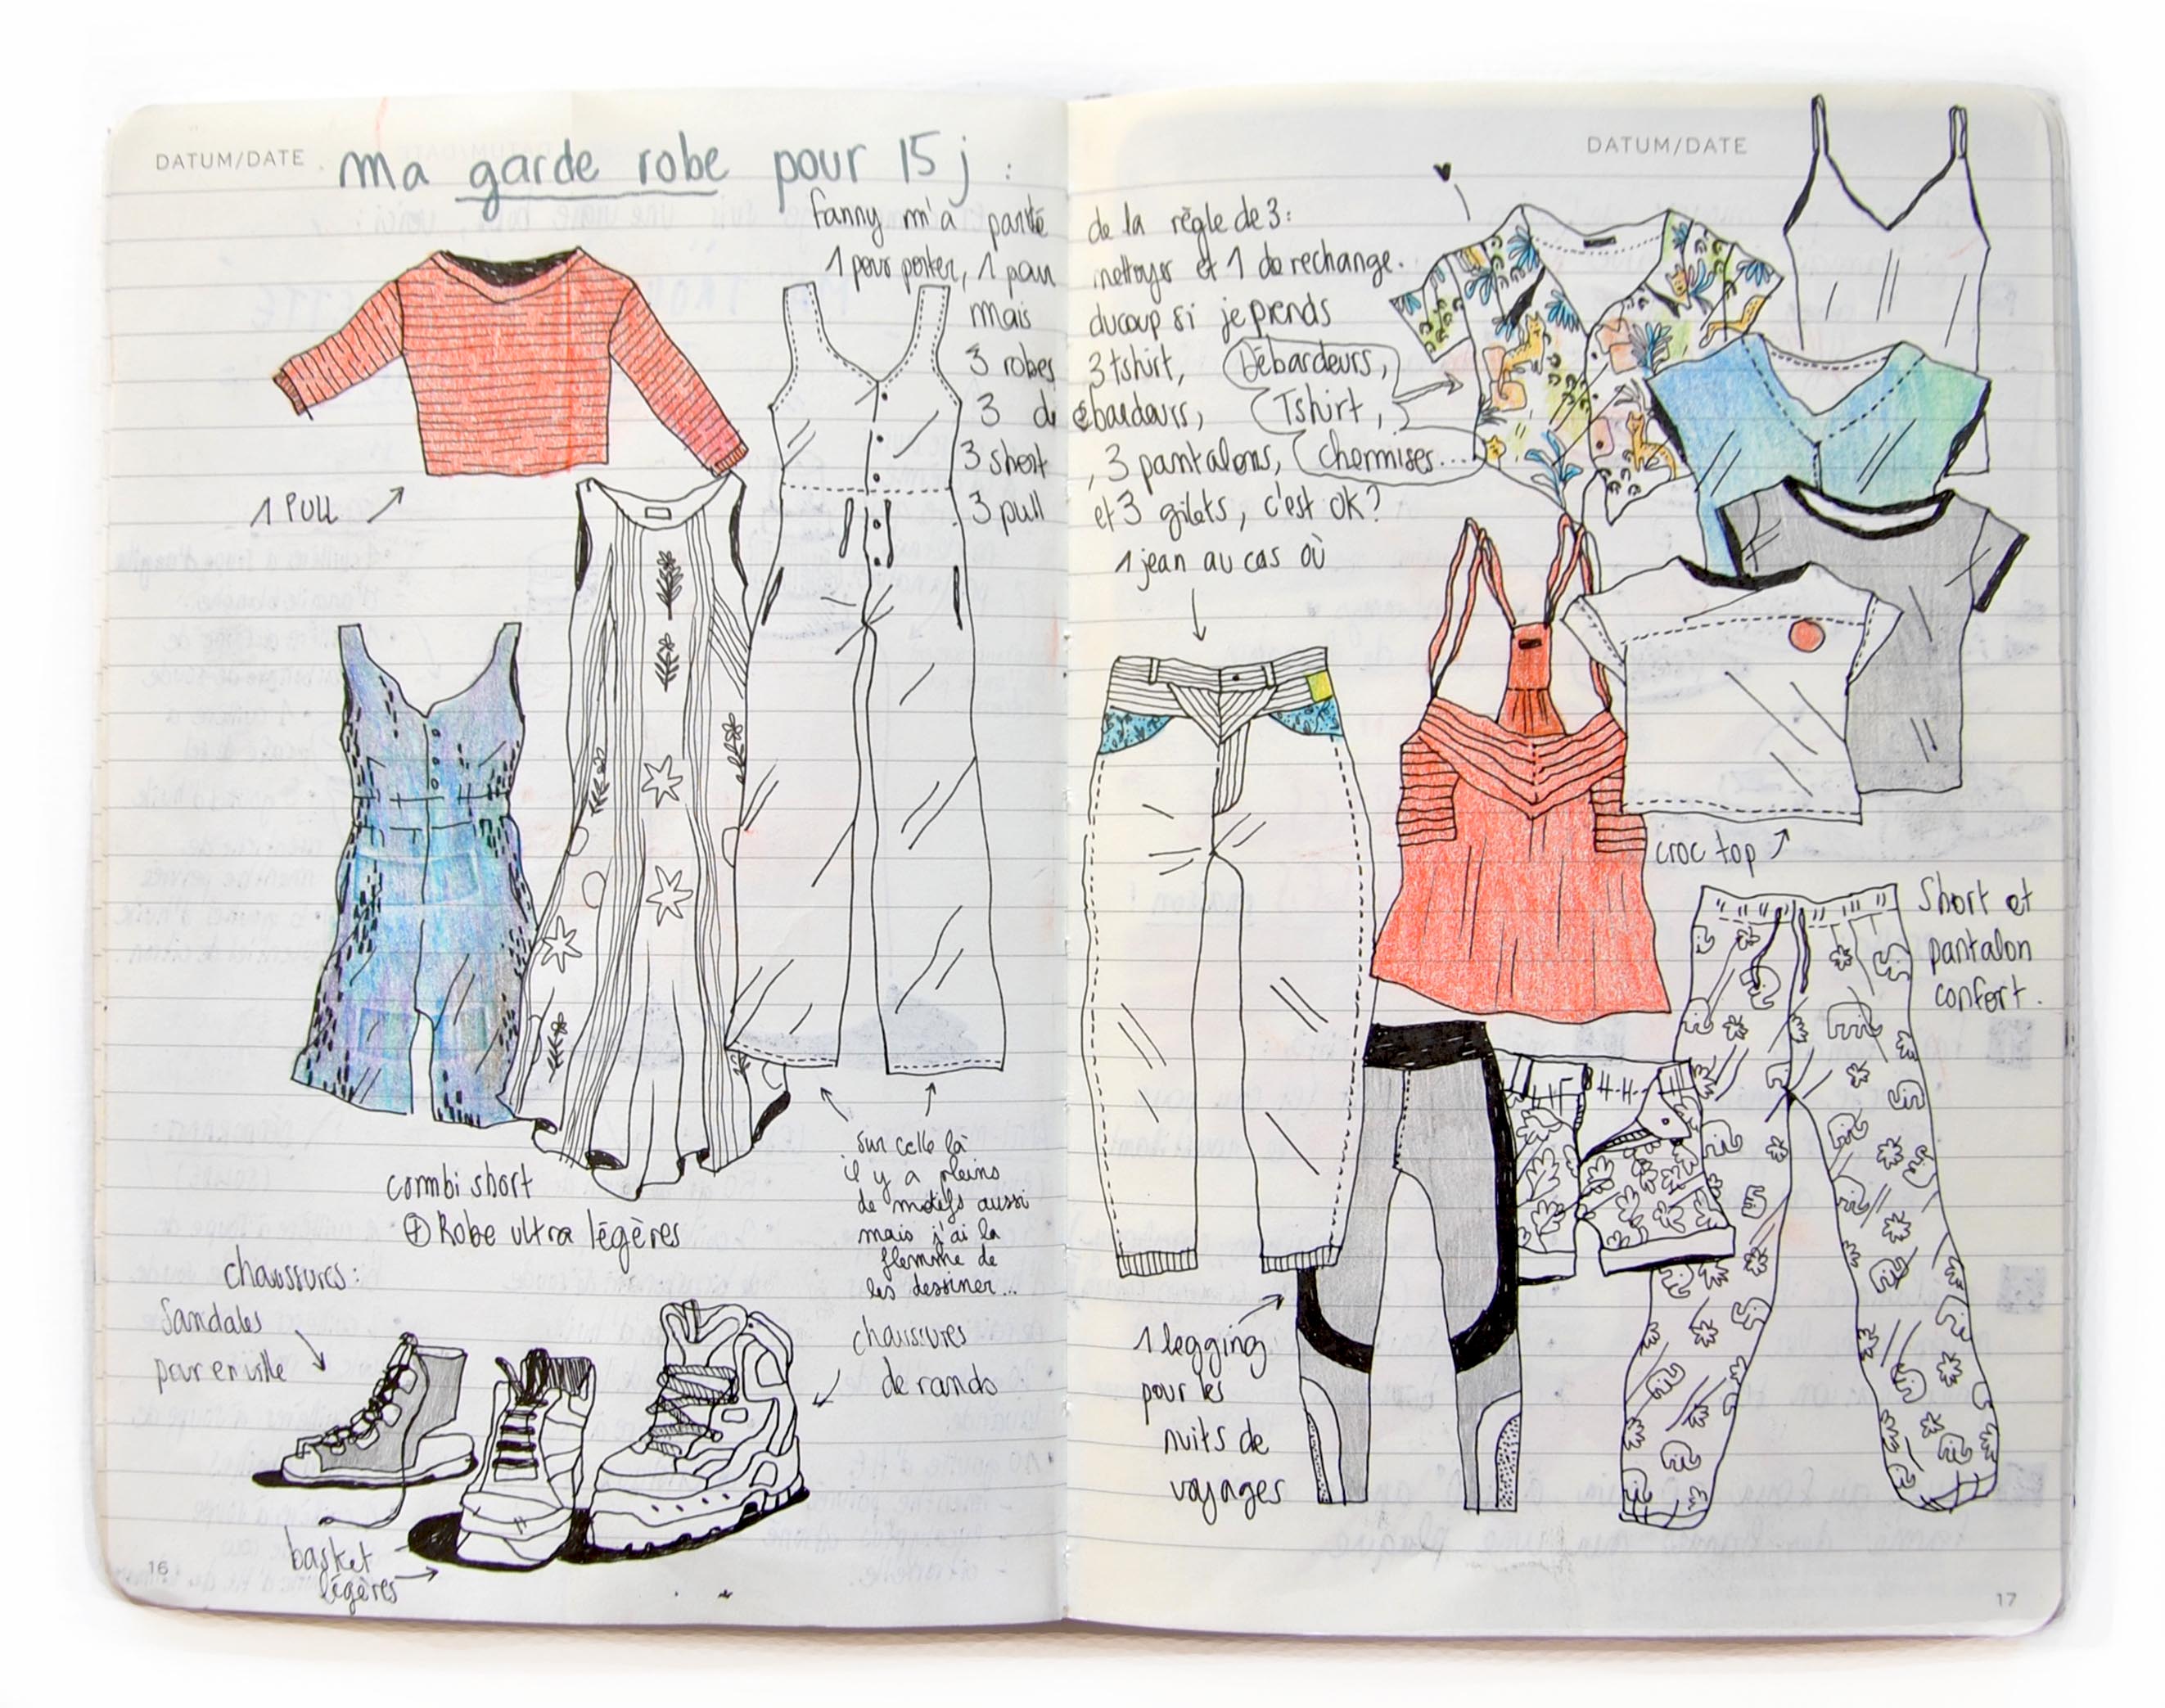 DATUM/DATE
ma garde robe pour 15 j :
DATUM/DATE
fanny m'a parlé de la règle de 3:
1 pour porter, 1 pour nettoyer et 1 de rechange.
mais ducoup si je prends
3 robes 3 tshirt,
3 débardeurs,
3 short, 3 pantalons,
3 pull et 3 gilets, c'est ok?
Débardeurs,
Tshirt,
chemises...
1 PULL
1 jean au cas où
croc top
Short et
pantalon
confort.
combi short
+ Robe ultra légères
sur celle là
il y a pleins
de motifs aussi
mais j'ai la
flemme de
les dessiner...
chaussures:
Sandales
pour en ville
chaussures
de rando
basket
légères
1 legging
pour les
nuits de
voyages
16
17